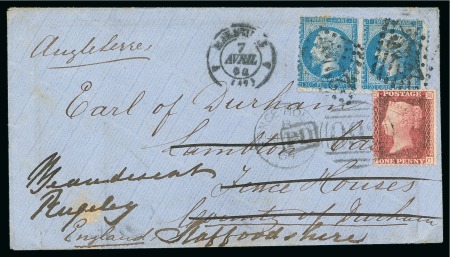 Angleterre
7
AVRIL
Earl of Durham
Lambton
PD
ONE PENNY
Fence Houses
County of Durham
Beaudesert
Rugeley
England Staffordshire